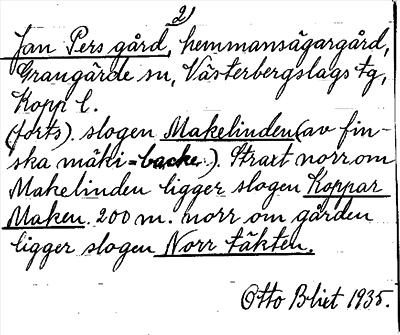 2)
Jan Pers gård, hemmansägargård,
Grangärde sn, Västerbergslags tg,
Kopp l.
(forts). slogen Makelinden (av fin-
ska mäki=backe). Straxt norr om
Makelinden ligger slogen Koppar
Maken. 200 m. norr om gården
ligger slogen Norr täkten.
Otto Blixt 1935.